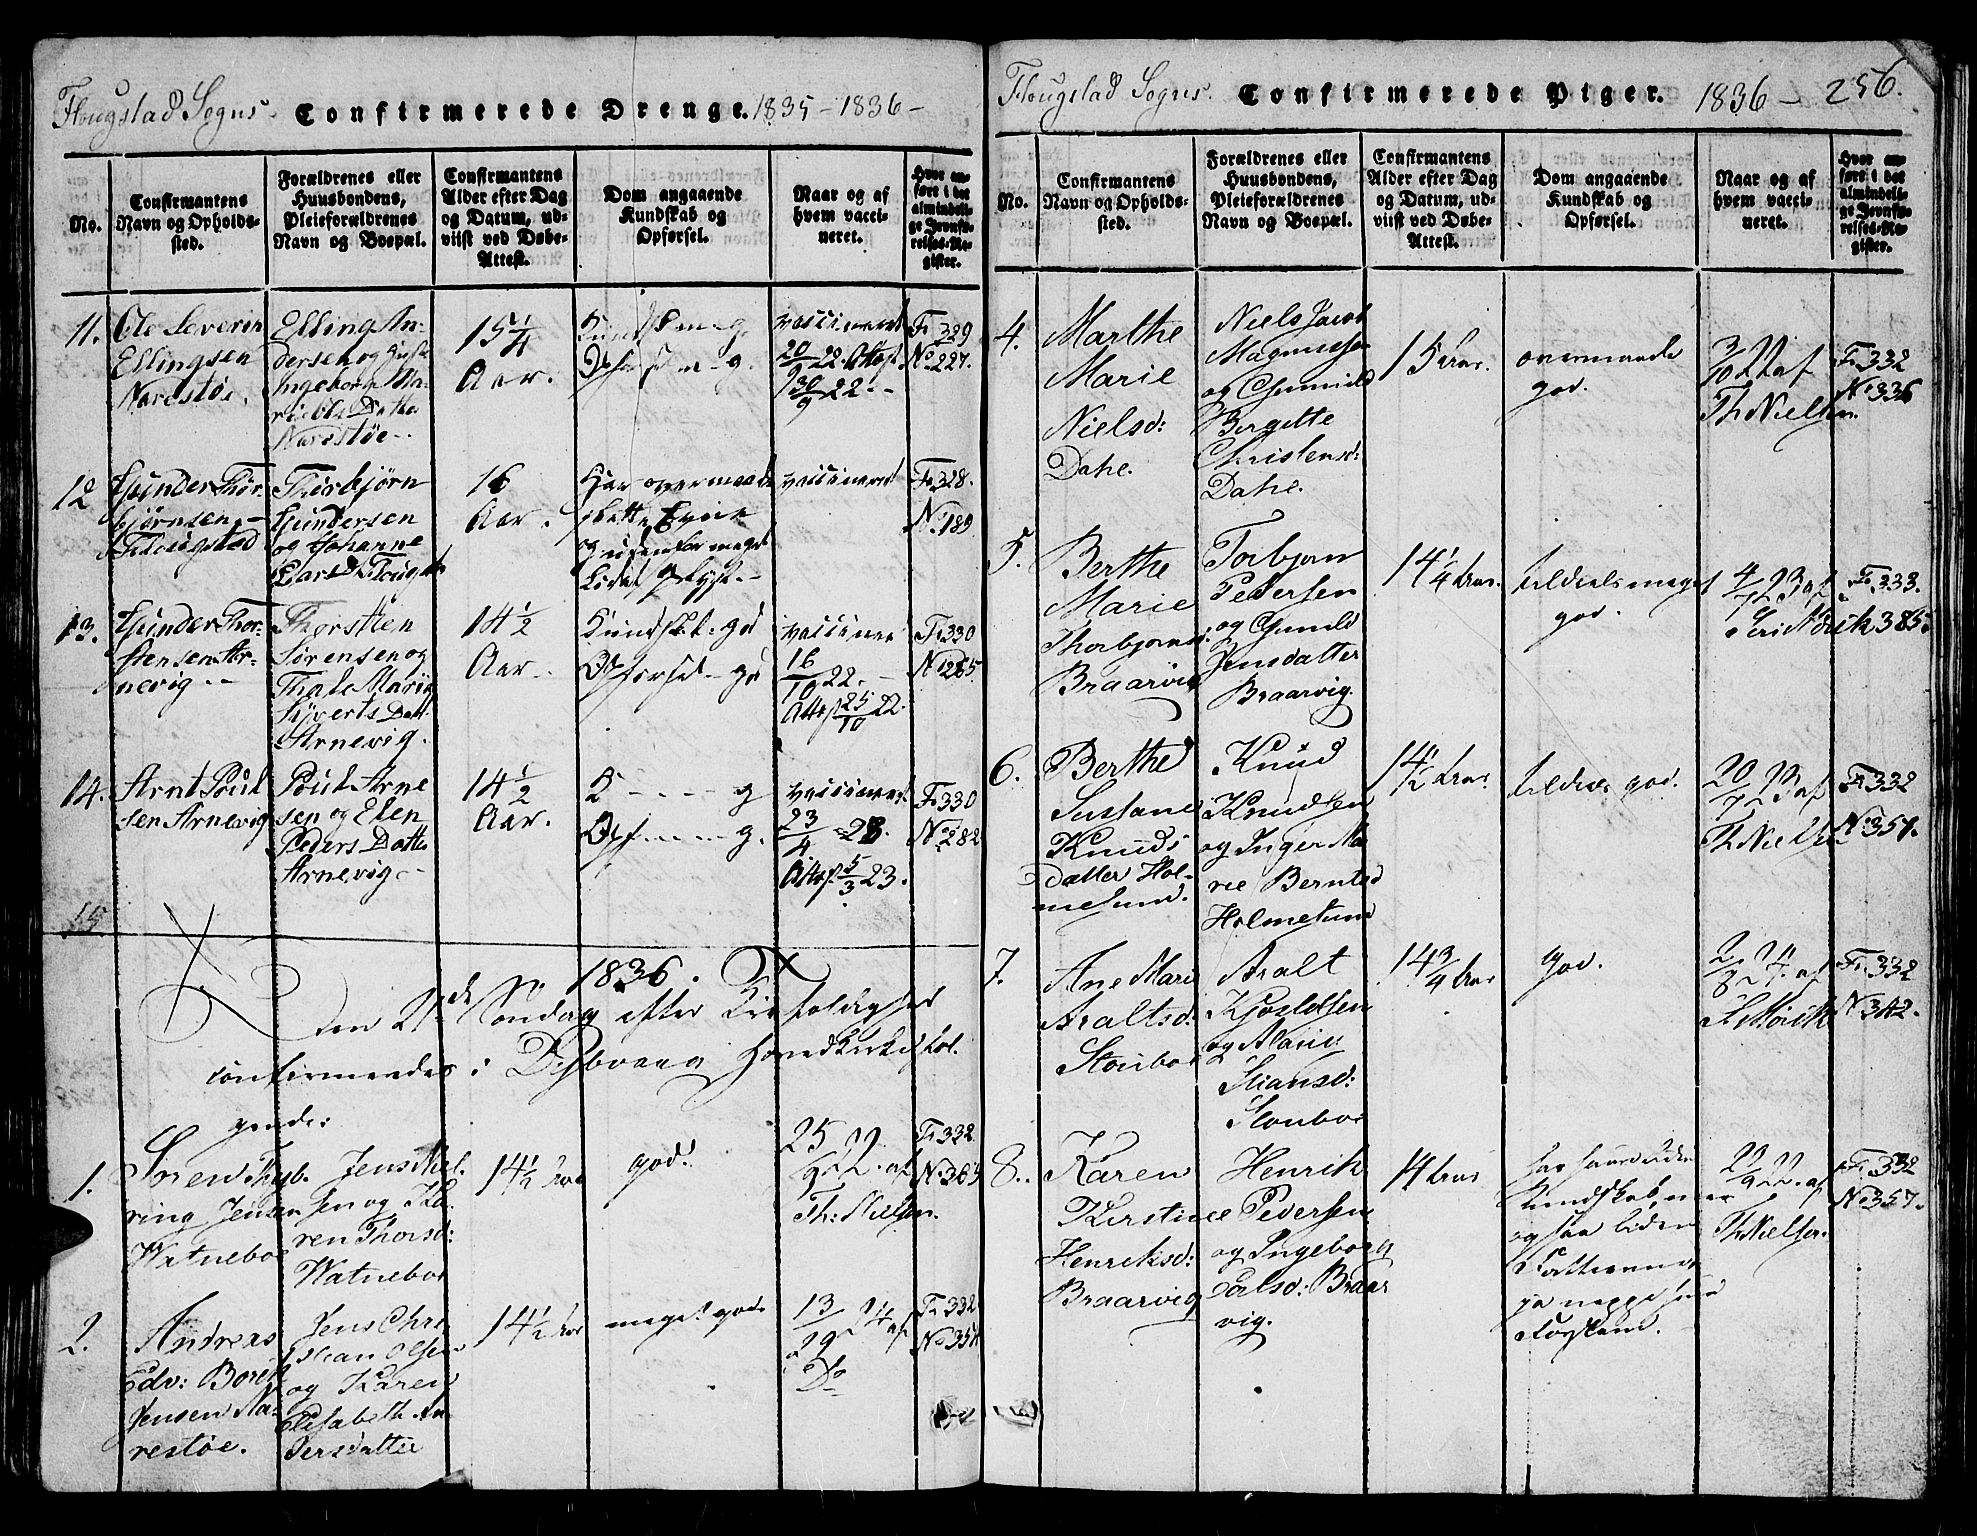 Flougstad Sogns Confirmerede Drenge. 1835-1836-
No.
Confirmantens
Navn og Opholds-
sted.
Forældrenes eller
Huusbondens,
Pleieforældrenes
Navn og Boepæl.
Confirmantens
Alder efter Dag
og Datum, ud-
viist ved Døbe-
Attest.
Dom angaaende
Kundskab og
Opførsel.
Naar og af
hvem vacci-
neret.
Hvor an-
føre i det
almindeli-
ge Jevnfø-
relses-Re-
gister.
11. Ole Severin
Ellingsen
Narestøe.
Elling An-
dersen og
Ingeborg Ma-
Datter
Narestøe
15 1/4
Aar.
vaccineret
20/9 22. Attest
30/9 22
F. 329
No. 227.
12 Gunder Thor-
bjørnsen
Flougstad
Thorbjørn
Gundersen
og Johanne
16
Aar.
Har
vaccineret
F. 328.
No. 189
13. Gunder Thor-
stensen Ar-
nevig
Thorstien
Sørensen og
Thale Marie
Syverts Datt.
Arnevig.
14 1/2
Aar
Kundsk. god
Opførsel god
vaccineret
16/10 22.
Attest 25/10 22.
F. 330
No. 265
14. Arnt Poul-
sen Arnevig
Poul Arne
sen og Elen
Peders Datter
Arnevig
14 1/2
Aar.
K - - - - g
Opf - - - g.
vaccineret
23/4 23.
Attest 5/3 23.
F. 330
No. 282
15.
1836.
Den 21de Søndag efter
confirmeredes i Dybvaag Hovedkirke føl-
gende:
1. Søren Thyb-
ring Jensen
Watneboe
Jens Niel-
sen og Ka-
ren Thorsd:
Watneboe
14 1/2 Aar
god.
25/9 22. af
Th: Nielsen.
F. 332
No. 363
2. Andreas
Edv: Boreth
Jensen Na-
restøe.
Jens Chri
stian Olsen
og Karen
Elisabeth An-
dersdatter
14 1/2 Aar
meget god
13/29 24 af
Do
F. 332
No. 351
Flougstad Sogns. Confirmerede Piger. 1836 - 256.
No.
Confirmantens
Navn og Opholds-
sted.
Forældrenes eller
Huusbondens,
Pleieforældrenes
Navn og Boepæl.
Confirmantens
Alder efter Dag
og Datum, ud-
viist ved Døbe-
Attest.
Dom angaaende
Kundskab og
Opførsel.
Naar og af
hvem vacci-
neret.
Hvor an-
føre i det
almindeli-
ge Jevnfø-
relses-Re-
gister.
4. Marthe
Marie
Nielsd:
Dahe.
Niels Jacob
Magnussen
og Gunnild
Birgitte
Christensd:
Dahe.
15 Aar.
overmaade
god.
3/10 22 af
Th Nielsen
F. 332
No. 336
5. Berthe
Marie
Thorbjørnsd:
Braarvig
Torbjørn
Pedersen
og Gunild
Jensdatter
Braarvig.
14 1/4 Aar.
tildeels meget
god.
4/7 23 af
F. 333.
No. 385.
6. Berthe
Susane
Knuds
datter Hol-
mesund.
Knud
Knudsen
og Inger Ma
rie Berntsd
Holmesund
14 1/2 Aar
tildeels god.
20/7 23 af
Th Nielsen
F. 332
No. 351.
7. Ane Mari
Araltsd:
Stoubøe
Aralt
Kjøstelsen
og Maria
Stiansd:
Stoubøe
14 3/4 Aar
god.
2/8 24. af
F. 332
No. 342.
8. Karen
Kirstine
Henriksd:
Braarvig
Henrik
Pedersen
og Ingeborg
Poulsd: Braar
vig.
14 Aar
har saare liden
Kundskab, men
og saa liden
Forstand.
22/9 22. af
Th Nielsen.
F. 332
No. 357.